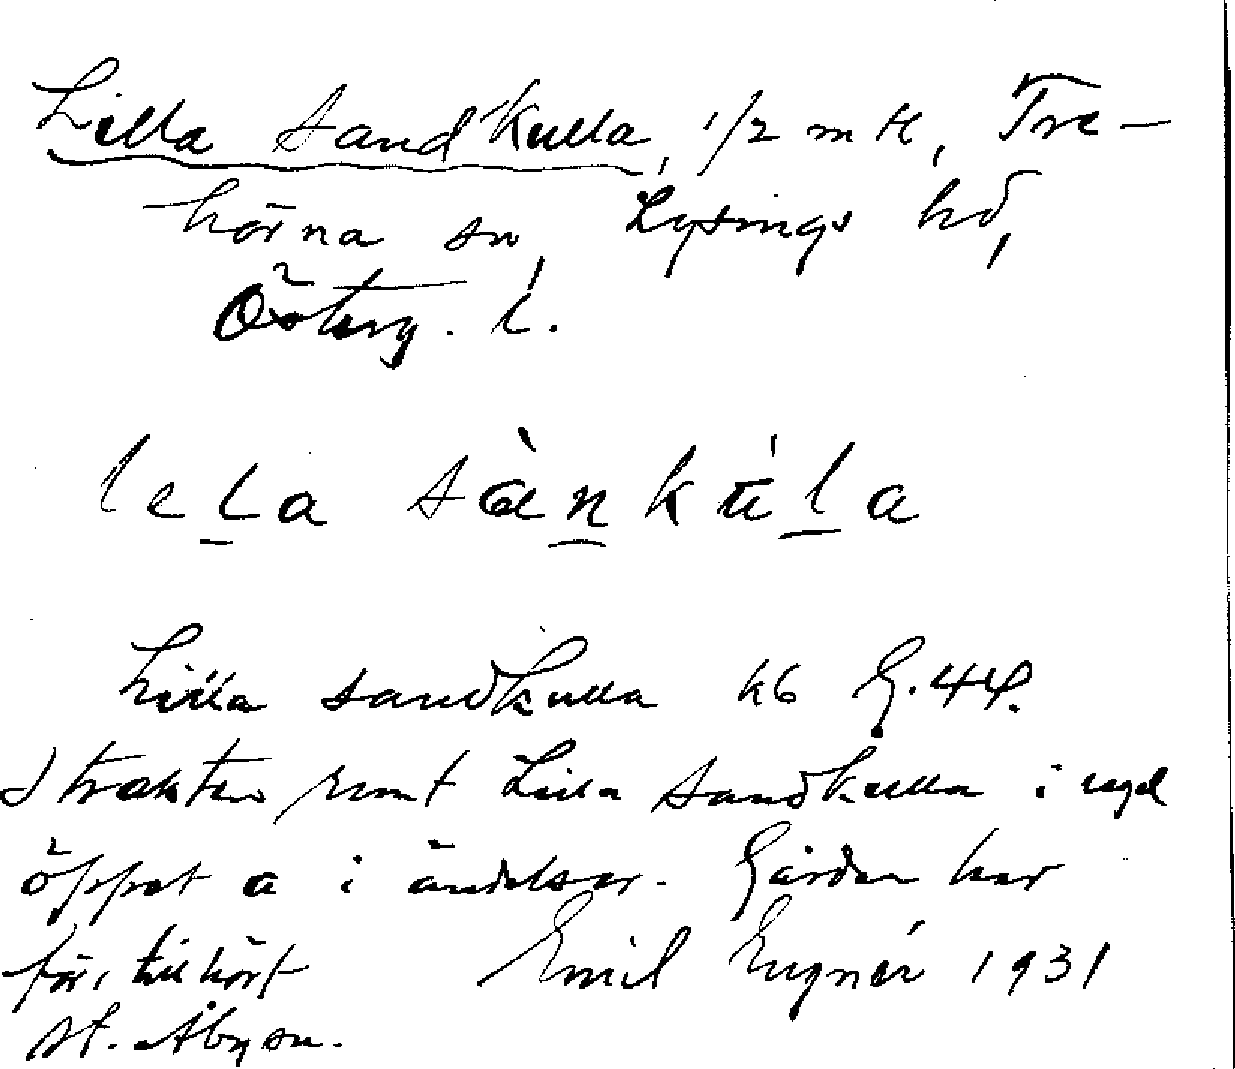 Lilla Sandkulla, 1/2 mtl, Tre-
hörna sn, Lysings hd,
Österg. l.
lela sànkúla
Lilla sandkulla kb G. 44.
I trakten runt Lilla Sandkulla i regel
öppet a i ändelser. Gården har
förr tillhört Emil Eugnér 1931
St. Åby sn.